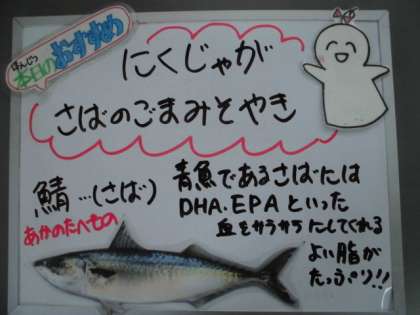 ほんじつ
本日のおすすめ
にくじゃが
さばのごまみそやき
鯖…(さば)
あかのたべもの
青魚であるさばには
DHA・EPAといった
血をサラサラにしてくれる
よい脂が
たっぷり!!